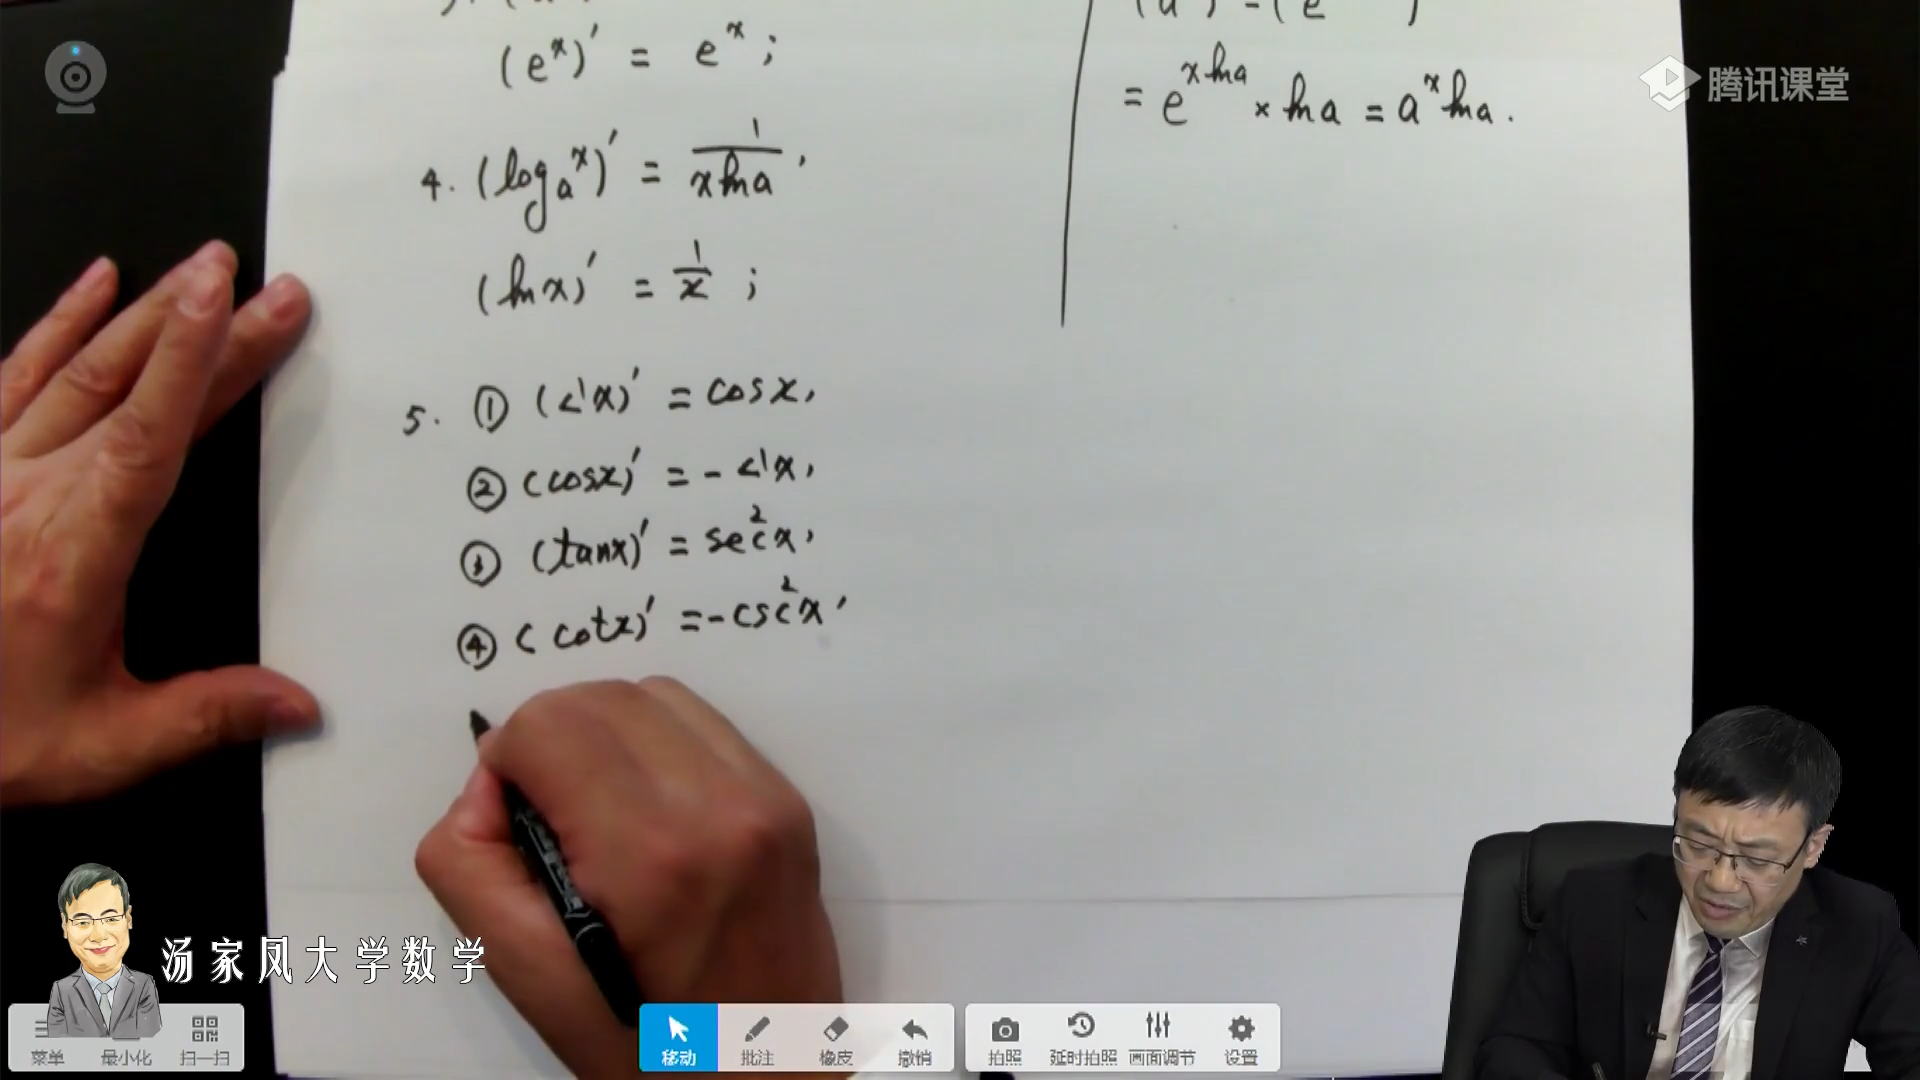 (eˣ)′ = eˣ ;
4. (logₐx)′ = 1/(x ln a) ,
(ln x)′ = 1/x ;
5. ① (sin x)′ = cos x ,
② (cos x)′ = - sin x ,
③ (tan x)′ = sec²x ,
④ (cot x)′ = - csc²x ,
= e^(x ln a) × ln a = aˣ ln a .
腾讯课堂
汤家凤大学数学
菜单 最小化 扫一扫
移动 批注 橡皮 撤销
拍照 延时拍照 画面调节 设置